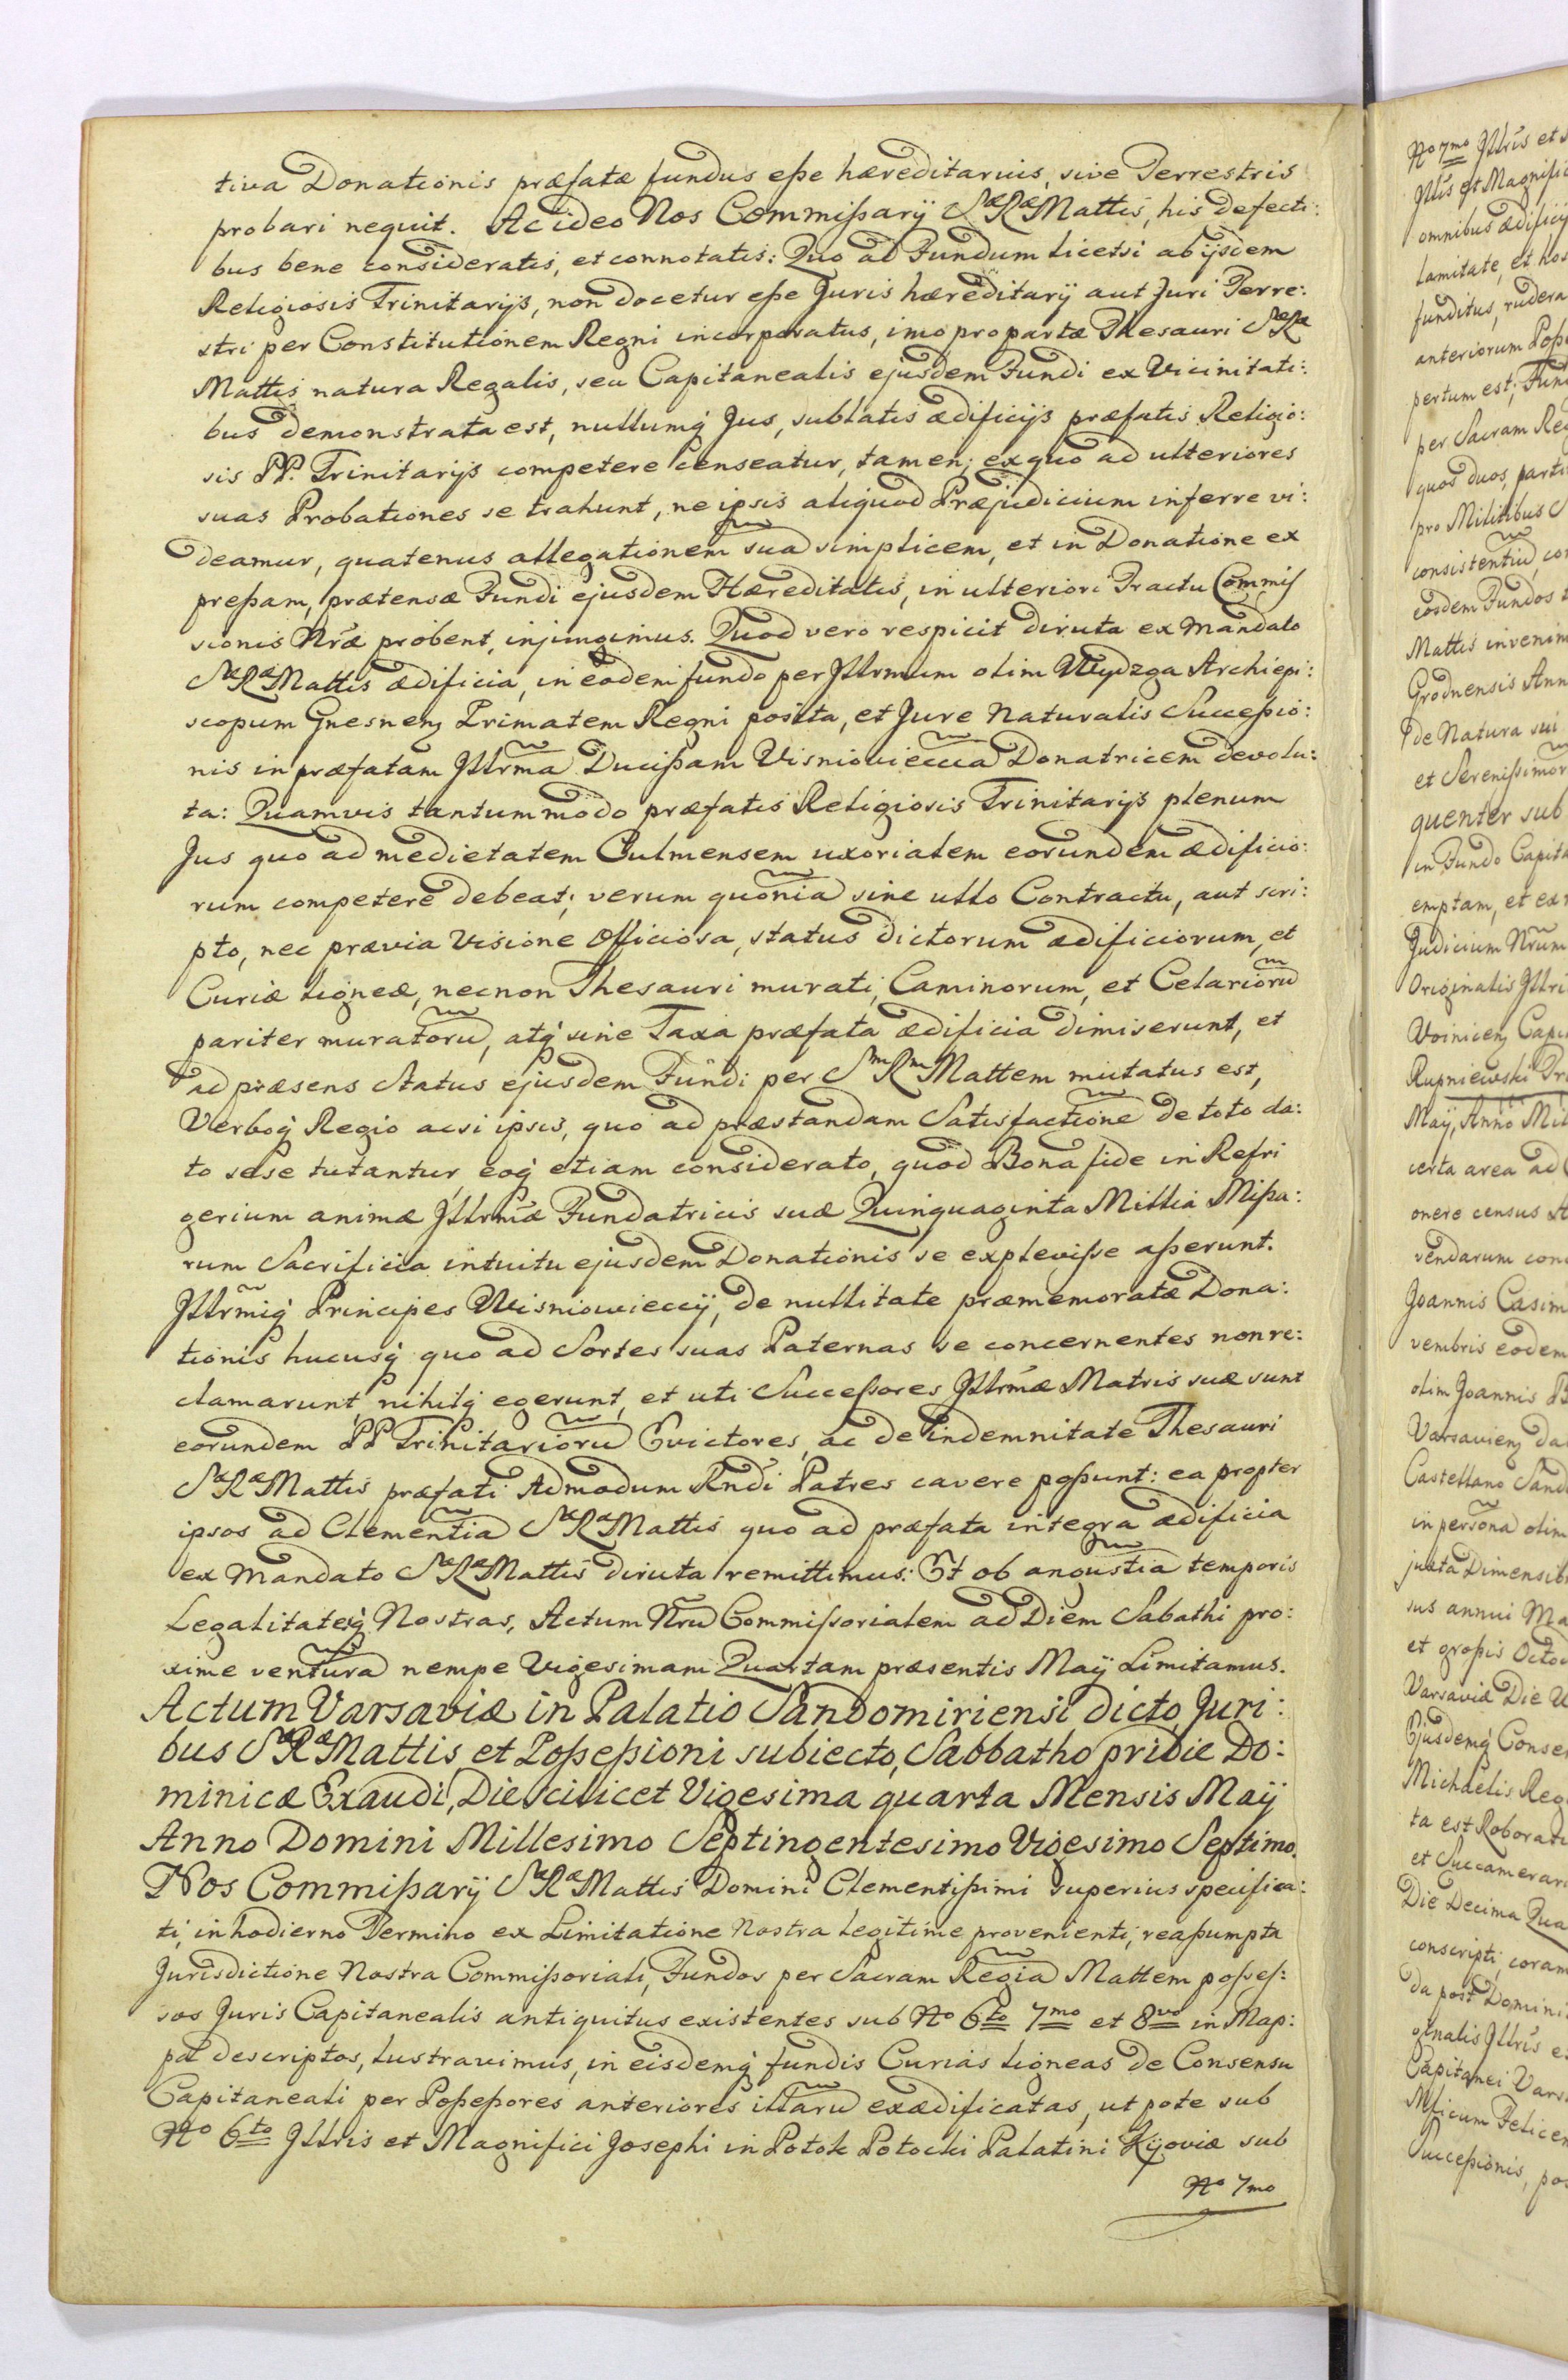 tiva Donationis præfatæ fundus eße hæreditarius, sive Terrestris
probari nequit. Ac ideo Nos Commißarÿ SæRæMattis, his Defecti:
bus bene consideratis, et connotatis: Quo ad Fundum licetsi ab ijsdem
Religiosis Trinitarijs, non docetur eße Juris hæreditarÿ aut Juri Terre:
stri per Constitutionem Regni incorporatus, imo pro parte Thesauri SæRæ
Mattis natura Regalis, seu Capitanealis ejusdem Fundi ex Vicinitati:
bus demonstrata est, nullumq́ Jus, sublatis ædificijs præfatis Religio:
sis PP. Trinitarijs competere censeatur, tamen; ex quo ad ulteriores
suas Probationes se trahunt, ne ipsis aliquod Præjudicium inferre vi:
deamur, quatenus allegationem sua simplicem, et in Donatione ex
preßam, prætensæ Fundi ejusdem Hæreditatis, in ulteriori Tractu Commis
sionis Nræ probent, injungimus. Quod vero respicit diruta ex Mandato
SæRæMattis ædificia, in eodem fundo per Jllrmum olim Wydzga Archiepi:
scopum Gnesnenß Primatem Regni posita, et Jure Naturalis Succeßio:
nis in præfatam Jllrma Ducißam Visnioviecca Donatricem devolu:
ta: Quamvis tantummodo præfatis Religiosis Trinitarijs plenum
Jus quo ad medietatem Culmensem uxorialem eorundem ædificio:
rum competere debeat; verum quonia sine ullo Contractu, aut scri:
pto, nec prævia Visione Officiosa, status dictorum ædificiorum, et
Curiæ ligneæ, necnon Thesauri murati, Caminorum, et Celarioru
pariter muratoru, atq́ sine Taxa præfata ædificia dimiserunt, et
ad præsens Status ejusdem Fundi per SmRmMattem mutatus est,
Verboq́ Regio acsi ipsis, quo ad præstandam Satisfactione de toto da:
to sese tutantur, eoq́ etiam considerato, quod Bona fide in Refri
gerium animæ Jllrmæ Fundatricis suæ Quinquaginta Millia Mißa:
rum Sacrificia intuitu ejusdem Donationis se expleviße aßerunt.
Jllrmiq́ Principes Wisniowieccÿ, de nullitate præmemoratæ Dona:
tionis hucusq́ quo ad Sortes suas Paternas se concernentes non re:
clamarunt, nihilq́ egerunt, et uti Succeßores Jllrmæ Matris suæ sunt
eorundem PP Trinitarioru Evictores, ac de indemnitate Thesauri
SæRæMattis præfati Admodum Rndi Patres cavere poßunt: ea propter
ipsos ad Clementia SæRæMattis quo ad præfata integra ædificia
ex Mandato SæRæMattis diruta remittimus. Et ob angustia temporis
Legalitatesq́ Nostras, Actum Nru Commißorialem ad Diem Sabathi pro:
xime ventura nempe Vigesimam Quartam præsentis Maÿ Limitamus.
Actum Varsaviæ in Palatio Sandomiriensi dicto, Juri:
bus SæRæMattis et Poßeßioni subiecto, Sabbatho pridie Do:
minicæ Exaudi, Die scilicet Vigesima quarta Mensis Maÿ
Anno Domini Millesimo Septingentesimo Vigesimo Septimo.
Nos Commißarÿ SæRæMattis Domini Clementißimi superius specifica:
ti, in hodierno Termino ex Limitatione Nostra legitime provenienti, reaßumpta
Jurisdictione Nostra Commißoriali, Fundos per Sacram Regia Mattem poßeß:
sos Juris Capitanealis antiquitus existentes sub No 6to 7mo et 8vo in Map:
pa descriptos, lustravimus, in eisdemq́ fundis Curias ligneas de Consensu
Capitaneali per Poßeßores anteriores illaru exædificatas, ut pote sub
No 6to Jllris et Magnifici Josephi in Potok Potocki Palatini Kijoviæ sub
No 7mo
No 7mo Jllris et
Jllris et Magnific
omnibus ædificij
lamitate, et hos
funditus, rudera
anteriorum Poß
pertum est; Fun
per Sacram Reg
quos duos, parti
pro Militibus S
consistentiu, con
eosdem Fundos
Mattis invenim
Grodnensis Ann
de Natura sui
et Serenißimor
quenter sub
in Fundo Capita
emptam, et ex
Judicium Nrum
Originalis Jllri
Woinicenß Capi
Rupniewski
Maÿ, Anno Mil
certa area ad
onere census
vendarum con
Joannis Casim
vembris eodem
olim Joannis
Varsavienß da
Castellano Sand
in persona olim
juxta Dimensi
sus annui Ma
et großis Octo
Varsaviæ Die
Ejusdemq́ Conse
Michaelis Reg
ta est Roborat
et Succamerar
Die Decima Qua
conscripti, coram
da post Domini
ginalis Jllris e
Capitanei Vars
Mficum Felice
Succeßionis, po